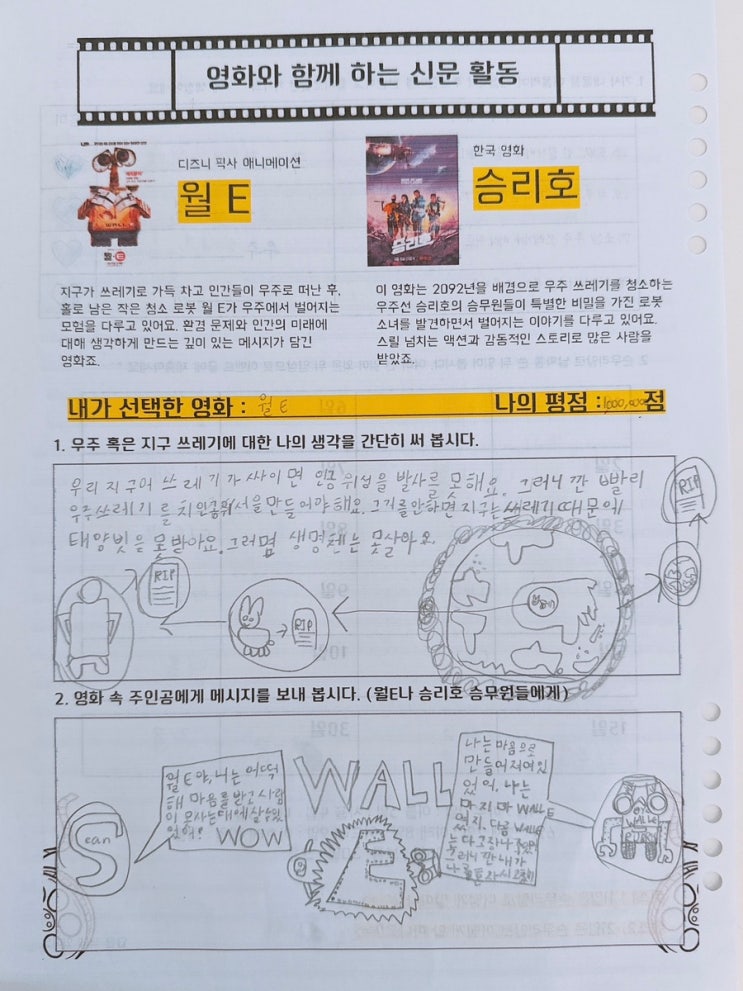 영화와 함께 하는 신문 활동
디즈니 픽사 애니메이션
월 E
한국 영화
승리호
월·E
승리호
지구가 쓰레기로 가득 차고 인간들이 우주로 떠난 후,
홀로 남은 작은 청소 로봇 월 E가 우주에서 벌어지는
모험을 다루고 있어요. 환경 문제와 인간의 미래에
대해 생각하게 만드는 깊이 있는 메시지가 담긴
영화죠.
이 영화는 2092년을 배경으로 우주 쓰레기를 청소하는
우주선 승리호의 승무원들이 특별한 비밀을 가진 로봇
소녀를 발견하면서 벌어지는 이야기를 다루고 있어요.
스릴 넘치는 액션과 감동적인 스토리로 많은 사람을
받았죠.
내가 선택한 영화 : 월E
나의 평점 : 점
1. 우주 혹은 지구 쓰레기에 대한 나의 생각을 간단히 써 봅시다.
우리 지구에 쓰레기가 싸이면 인공위성을 발사를 못해요. 그러니깐 빨리
우주쓰레기를 만들어야해요. 그거를안하면 지구는 쓰레기때문에
태양빛은 못받아요. 그러면 생명체는 못살아요.
RIP
RIP
RIP
2. 영화 속 주인공에게 메시지를 보내 봅시다. (월E나 승리호 승무원들에게)
월E야, 너는 어떡
해 마음을 받고 사람
이 못사는대에 살수있
었어? WOW
S can
WALL
E
나는 마음으로
만들어져여있
었어. 나는
마지막 WALLE
였지. 다른 WALLE
는 다 고장나
그러니깐 내가
WALLE
15일
30일